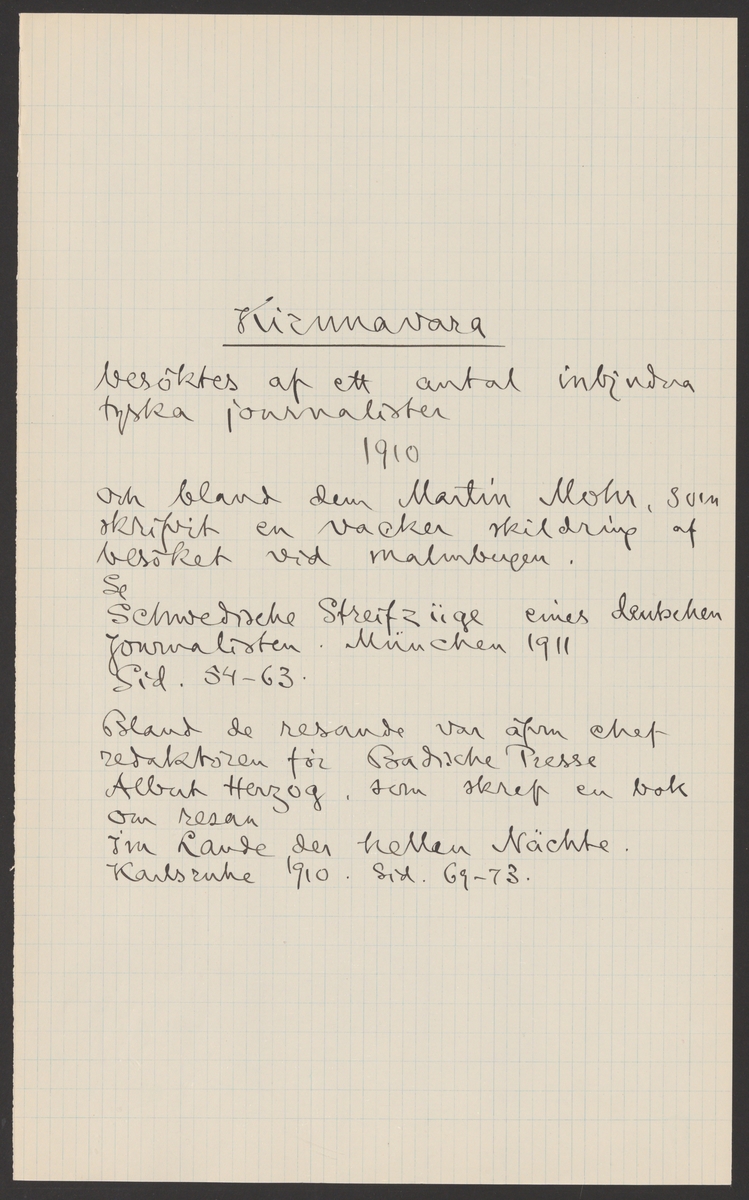 Kirunavara
besöktes af ett antal inbjudna
tyska journalister
1910
och bland dem Martin Mohr, som
skrifvit en vacker skildring af
besöket vid malmbergen.
Se
Schwedische Streifzüge eines deutschen
Journalisten. München 1911
Sid. 54-63.
Bland de resande var äfven chef
redaktören för Badische Presse
Albert Herzog, som skref en bok
om resan
Im Lande der hellen Nächte.
Karlsruhe 1910. Sid. 69-73.